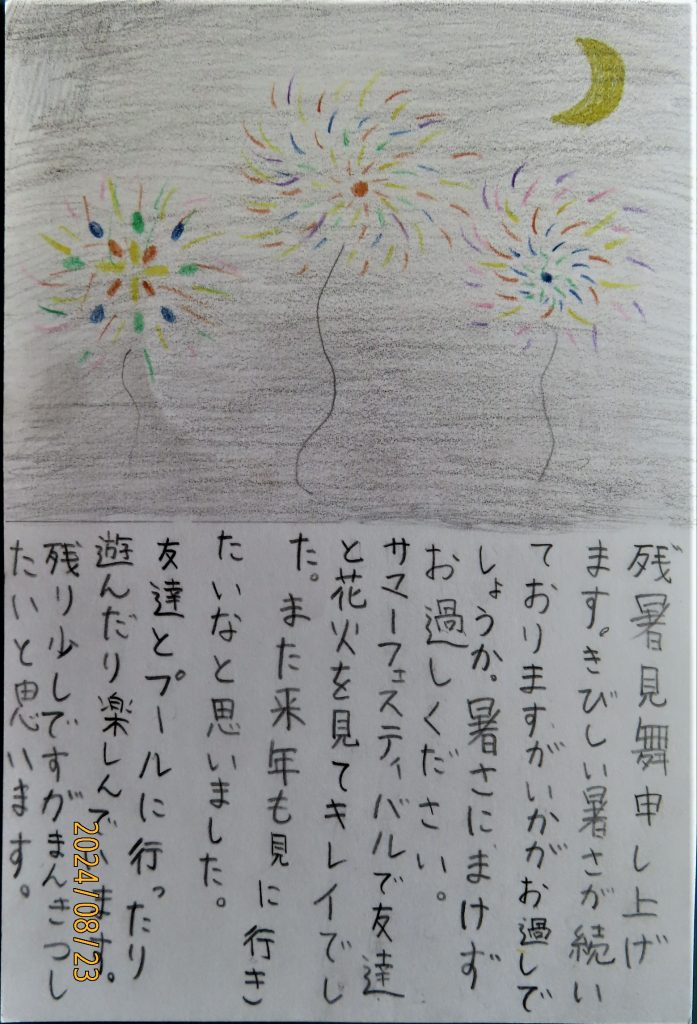 残暑見舞申し上げ
ます。きびしい暑さが続い
ておりますがいかがお過しで
しょうか。暑さにまけず
お過しください。
サマーフェスティバルで友達
と花火を見てキレイでし
た。また来年も見に行き
たいなと思いました。
友達とプールに行ったり
遊んだり楽しんでいます。
残り少しですがまんきつし
たいと思います。
2024/08/23